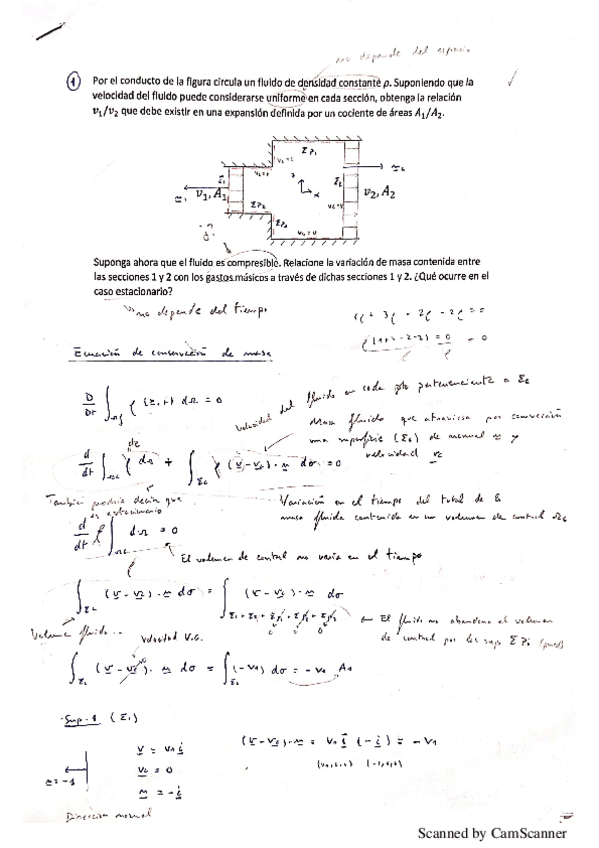 no depende del espacio
1 Por el conducto de la figura circula un fluido de densidad constante ρ. Suponiendo que la
velocidad del fluido puede considerarse uniforme en cada sección, obtenga la relación
v₁/v₂ que debe existir en una expansión definida por un cociente de áreas A₁/A₂.
v₁, A₁
v₂, A₂
Suponga ahora que el fluido es compresible. Relacione la variación de masa contenida entre
las secciones 1 y 2 con los gastos másicos a través de dichas secciones 1 y 2. ¿Qué ocurre en el
caso estacionario?
no depende del tiempo
Ecuación de conservación de masa
velocidad del fluido en cada pto perteneciente a Σc
Masa fluida que atraviesa por convección
una superficie (Σc) de normal n y
velocidad vc
También podría decir que
es estacionario
Variación en el tiempo del total de la
masa fluida contenida en un volumen de control Ωc
El volumen de control no varía en el tiempo
∫Σc (v - vc) · n dσ =
(v - vc) · n dσ
Volumen fluido...
Velocidad V.C.
El fluido no abandona el volumen
de control por las sup ΣPi (pared)
∫Σ₁ (v - vc) · n dσ = ∫Σ₁ (-v₁) dσ = -v₁ A₁
Sup-1 (Σ₁)
v = v₁ i
(v - vc) · n = v₁ i (-i) = -v₁
vc = 0
n = -i
Dirección normal
Scanned by CamScanner